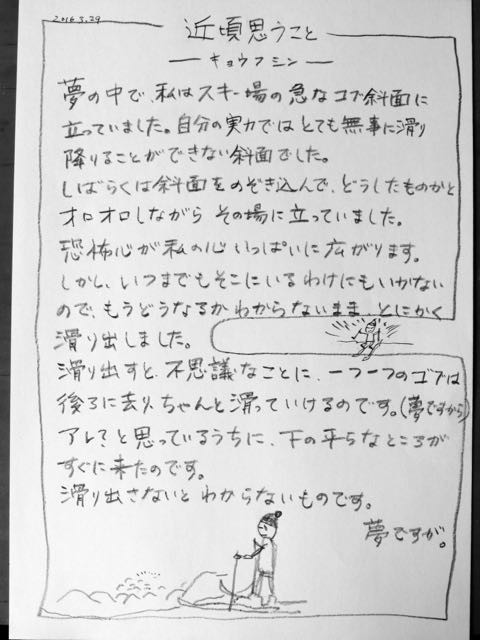 2016.3.29
近頃思うこと
―キョウフシン―
夢の中で、私はスキー場の急なコブ斜面に
立っていました。自分の実力ではとても無事に滑り
降りることができない斜面でした。
しばらくは斜面をのぞき込んで、どうしたものかと
オロオロしながら その場に立っていました。
恐怖心が私の心いっぱいに広がります。
しかし、いつまでもそこにいるわけにもいかない
ので、もうどうなるかわからないまま、とにかく
滑り出しました。
滑り出すと、不思議なことに、一つ一つのコブは
後ろに去り、ちゃんと滑っていけるのです。(夢ですから)
アレ?と思っているうちに、下の平らなところが
すぐに来たのです。
滑り出さないと わからないものです。
夢ですが。